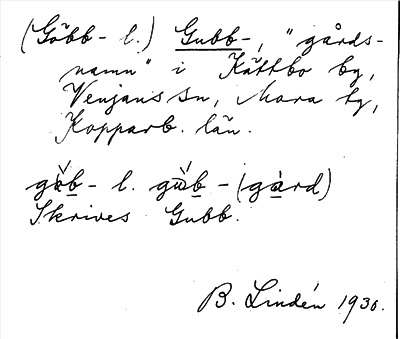 (Göbb- l.) Gubb-, "gårds-
namn" i Kättbo by,
Venjans sn, Mora tg,
Kopparb. län.
gòb- l. gùb- (gàrd)
Skrives Gubb.
B. Lindén 1930.